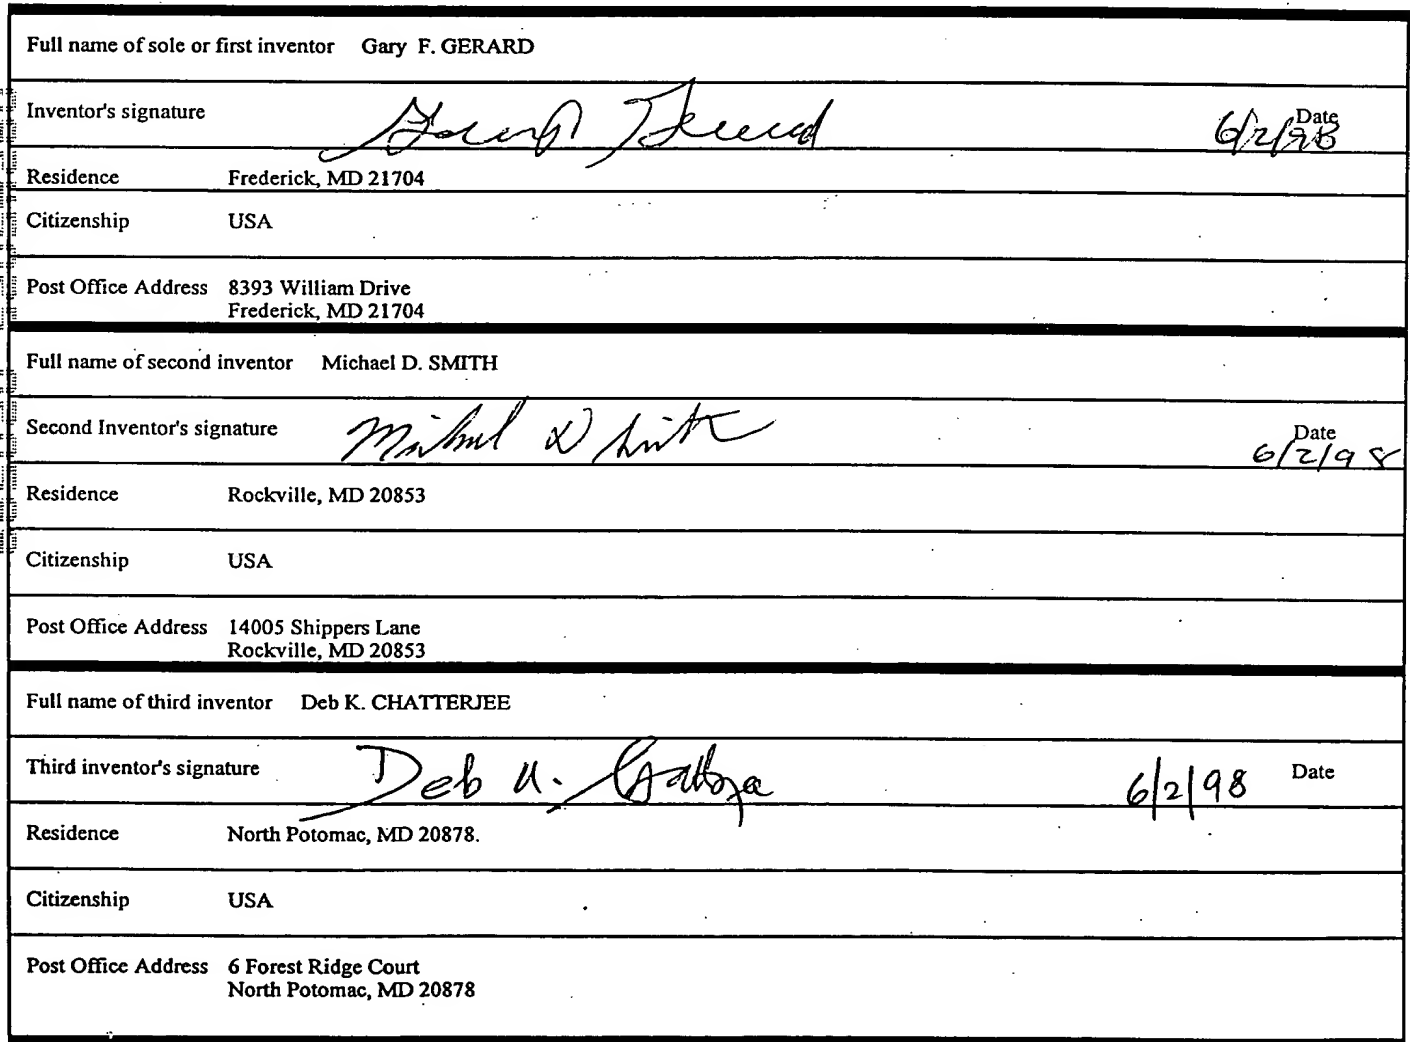 Full name of sole or first inventor Gary F. GERARD
Inventor's signature Gary F Gerard 6/2/98 Date
Residence Frederick, MD 21704
Citizenship USA
Post Office Address 8393 William Drive
Frederick, MD 21704
Full name of second inventor Michael D. SMITH
Second Inventor's signature Michael D Smith 6/2/98 Date
Residence Rockville, MD 20853
Citizenship USA
Post Office Address 14005 Shippers Lane
Rockville, MD 20853
Full name of third inventor Deb K. CHATTERJEE
Third inventor's signature Deb K. Chatterjee 6/2/98 Date
Residence North Potomac, MD 20878.
Citizenship USA
Post Office Address 6 Forest Ridge Court
North Potomac, MD 20878